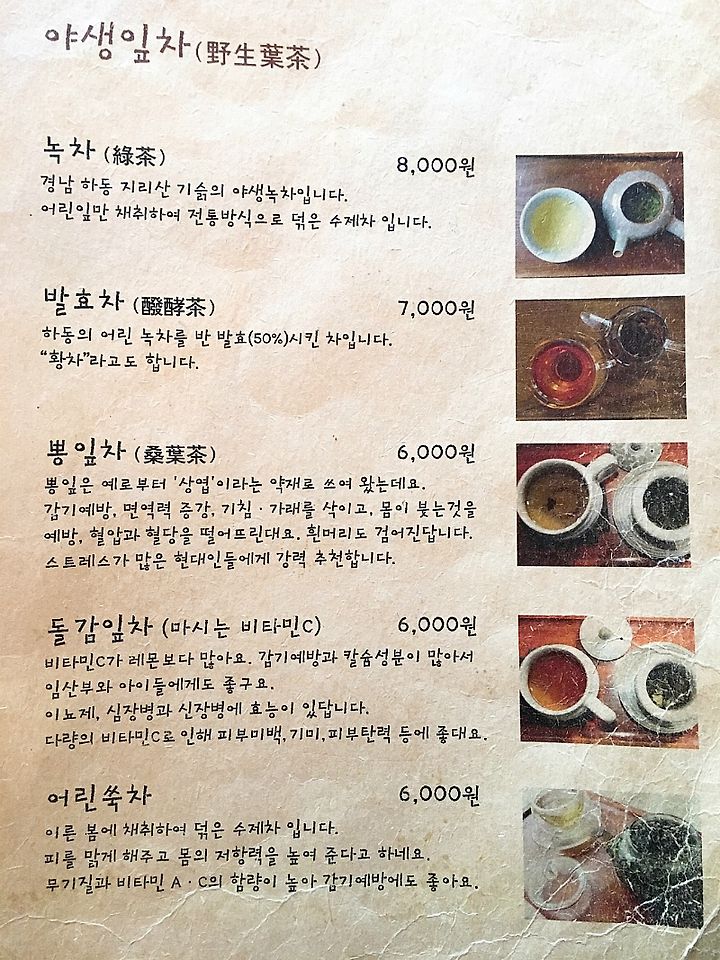 야생잎차(野生葉茶)
녹차 (綠茶) 8,000원
경남 하동 지리산 기슭의 야생녹차입니다.
어린잎만 채취하여 전통방식으로 덖은 수제차 입니다.
발효차 (醱酵茶) 7,000원
하동의 어린 녹차를 반 발효(50%)시킨 차입니다.
"황차"라고도 합니다.
뽕잎차 (桑葉茶) 6,000원
뽕잎은 예로부터 '상엽'이라는 약재로 쓰여 왔는데요.
감기예방, 면역력 증강, 기침·가래를 삭이고, 몸이 붓는것을
예방, 혈압과 혈당을 떨어뜨린대요. 흰머리도 검어진답니다.
스트레스가 많은 현대인들에게 강력 추천합니다.
돌감잎차 (마시는 비타민C) 6,000원
비타민C가 레몬보다 많아요. 감기예방과 칼슘성분이 많아서
임산부와 아이들에게도 좋구요.
이뇨제, 심장병과 신장병에 효능이 있답니다.
다량의 비타민C로 인해 피부미백, 기미, 피부탄력 등에 좋대요.
어린쑥차 6,000원
이른 봄에 채취하여 덖은 수제차 입니다.
피를 맑게 해주고 몸의 저항력을 높여 준다고 하네요.
무기질과 비타민 A·C의 함량이 높아 감기예방에도 좋아요.